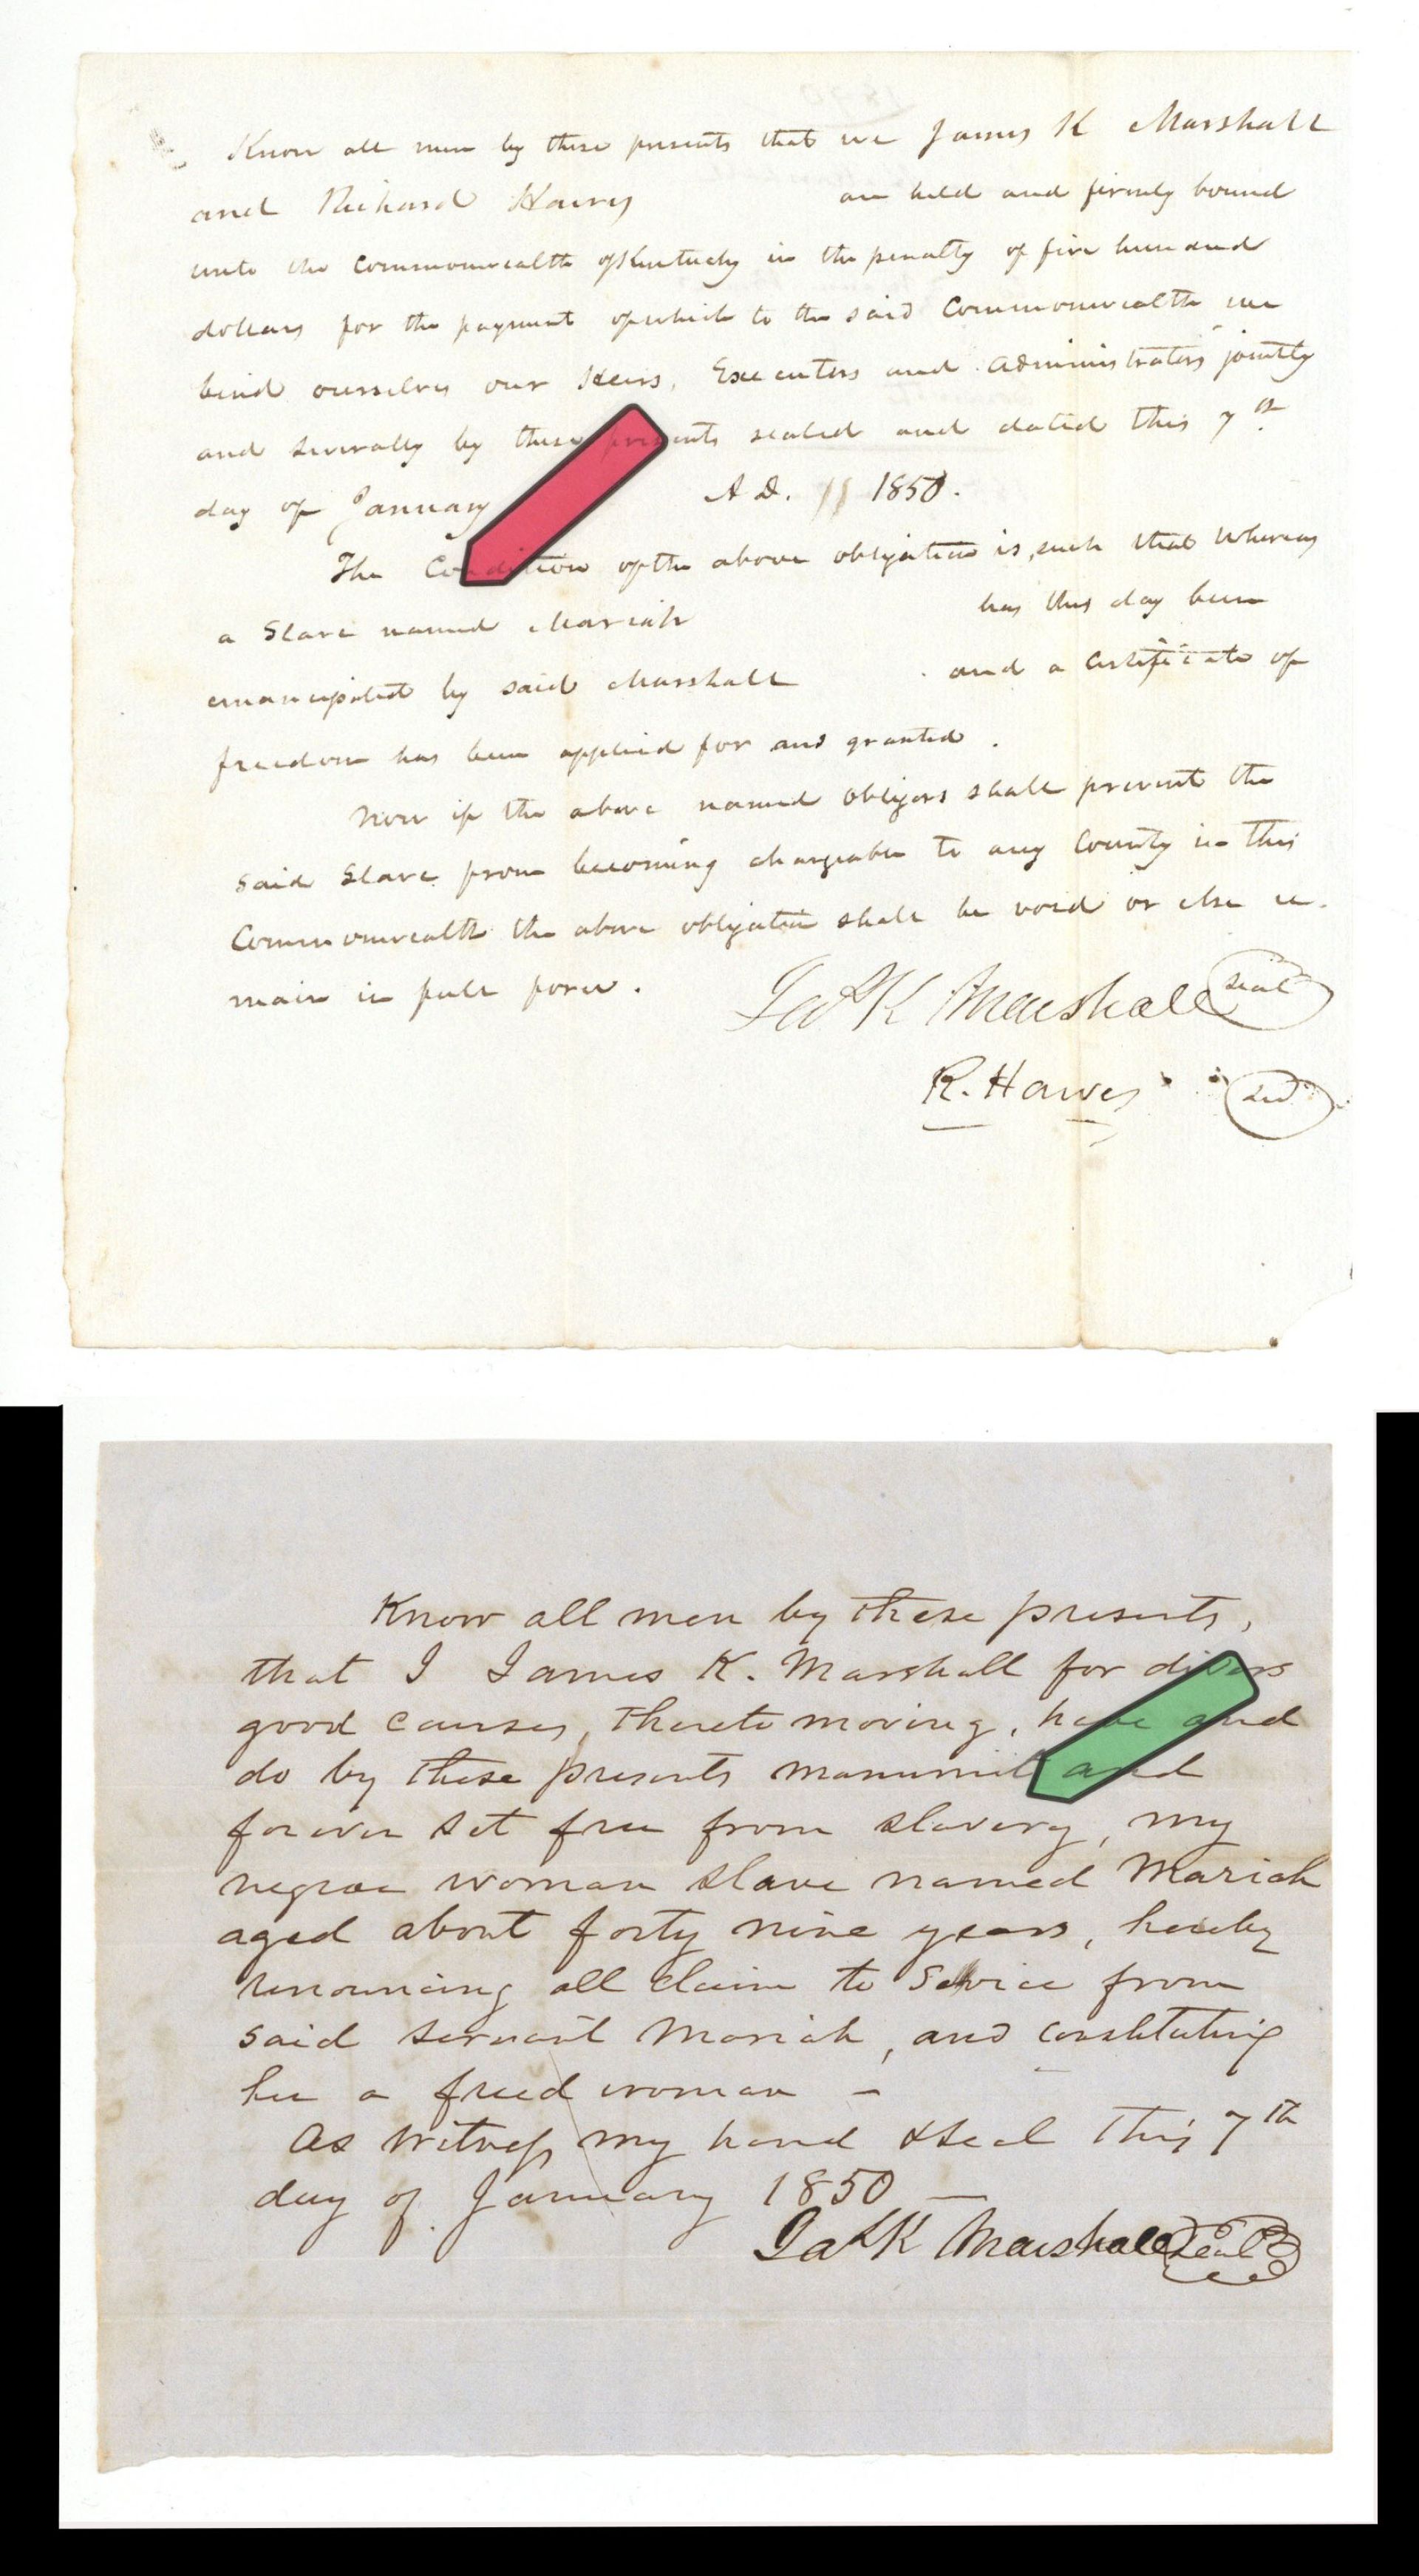 Know all men by these presents that we James K Marshall
and Richard Hawes are held and firmly bound
unto the Commonwealth of Kentucky in the penalty of five hundred
dollars for the payment of which to the said Commonwealth we
bind ourselves our Heirs, Executors and Administrators jointly
and severally by these presents sealed and dated this 7th
day of January A D. 1850.
The Condition of the above obligation is, such that Whereas
a Slave named Mariah has this day been
emancipated by said Marshall and a Certificate of
freedom has been applied for and granted.
Now if the above named obligors shall prevent the
said Slave from becoming chargeable to any County in this
Commonwealth the above obligation shall be void or else re-
main in full force.
Jas K Marshall Seal
R. Hawes Seal
Know all men by these presents,
that I James K. Marshall for divers
good causes, thereto moving, have and
do by these presents manumit and
forever set free from slavery, my
negroe woman slave named Mariah
aged about forty nine years, hereby
renouncing all claim to service from
said servant Mariah, and constituting
her a freed woman -
As witness my hand & seal this 7th
day of January 1850 —
Jas K Marshall Seal